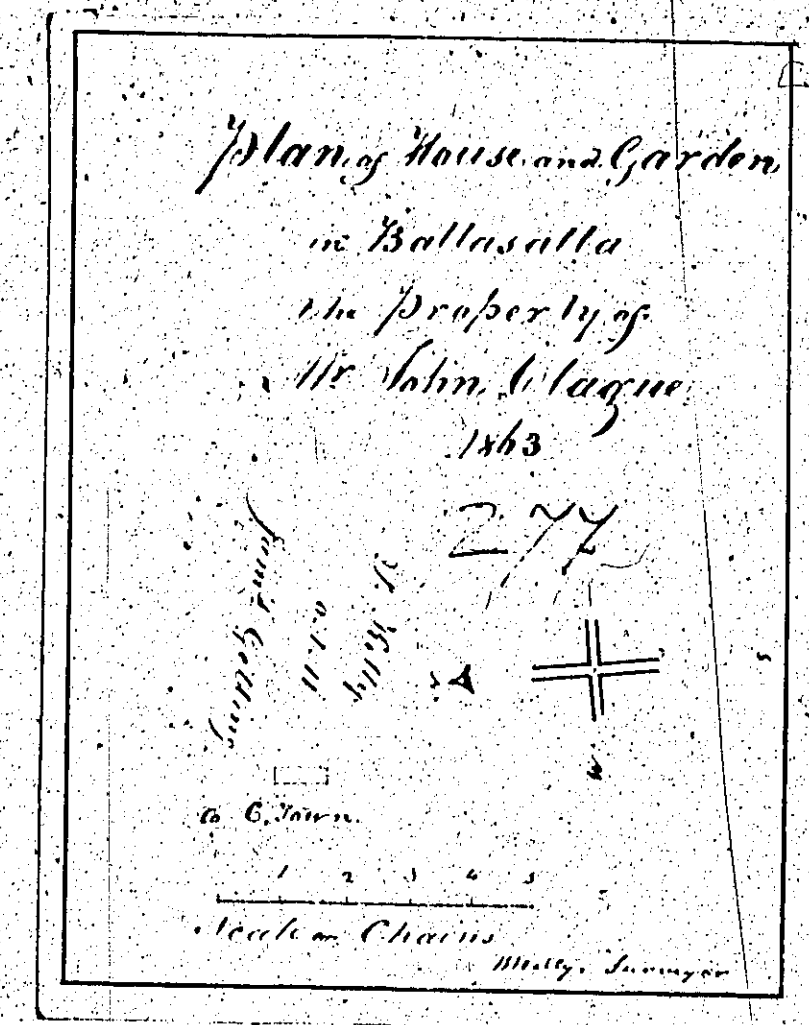 Plan of House and Garden
in Ballasalla
the Property of
Mr John Clague
1863
277
to C. Town
1 2 3 4 5
Scale in Chains
Surveyor